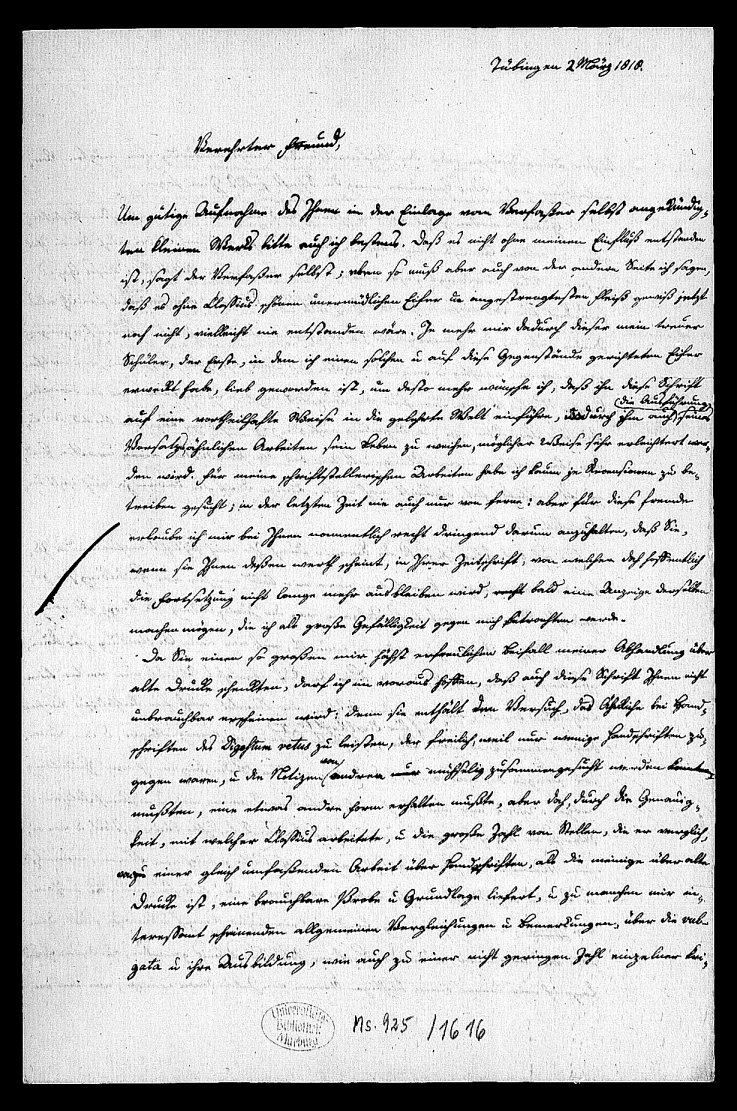 Tübingen 2 März 1818.
Verehrter Freund,
Um gütige Aufnahme des Ihnen in der Einlage vom Verfaßer selbst angekündig-
ten kleinen Werks bitte auch ich bestens. Daß es nicht ohne meinen Einfluß entstanden
ist, sagt der Verfaßer selbst; eben so muß aber auch von der andern Seite ich sagen,
daß es ohne Clossius schönen unermüdlichen Eifer u angestrengtesten Fleiß gewiß jetzt
noch nicht, vielleicht nie entstanden wäre. Je mehr mir dadurch dieser mein treuer
Schüler, der Erste, in dem ich einen solchen u auf diese Gegenstände gerichteten Eifer
erweckt habe, lieb geworden ist, um desto mehr wünsche ich, daß ihn diese Schrift
auf eine vortheilhafte Weise in die gelehrte Welt einführe, wodurch ihm auch (die Ausführung seines
Vorsatzes ähnlichen Arbeiten sein Leben zu weihen, möglicher Weise sehr erleichtert wer-
den wird. Für meine schriftstellerischen Arbeiten habe ich kaum je Recensionen zu be-
treiben gesucht, in der letzten Zeit nie auch nur von ferne: aber für diese fremde
erlaube ich mir bei Ihnen namentlich recht dringend darum anzuhalten, daß Sie,
wenn sie Ihnen deßen werth scheint, in Ihrer Zeitschrift, von welcher doch hoffentlich
die Fortsetzung nicht lange mehr ausbleiben wird, recht bald eine Anzeige derselben
machen mögen, die ich als große Gefälligkeit gegen mich betrachten werde.
Da Sie einen so großen mir höchst erfreulichen Beifall meiner Abhandlung über
alte Drucke schenkten, darf ich im voraus hoffen, daß auch diese Schrift Ihnen nicht
unbrauchbar erscheinen wird: denn sie enthält den Versuch, das Ähnliche bei Hand-
schriften des Digestum vetus zu leisten, der freilich, weil nur wenige Handschriften zu-
gegen waren, u die Notizen von andren nur mühselig zusammengesucht werden
mußten, eine etwas andre Form erhalten mußte, aber doch, durch die Genauig-
keit, mit welcher Clossius arbeitete, u die große Zahl von Stellen, die er verglich,
zu einer gleich umfaßenden Arbeit über Handschriften, als die meinige über alte
Drucke ist, eine brauchbare Probe u Grundlage liefert, u zu manchen mir in-
teressant scheinenden allgemeinen Vergleichungen u Bemerkungen, über die vul-
gata u ihre Ausbildung, wie auch zu einer nicht geringen Zahl einzelner Kri-
Universitäts-
Bibliothek
Marburg
Ms. 925 /1616